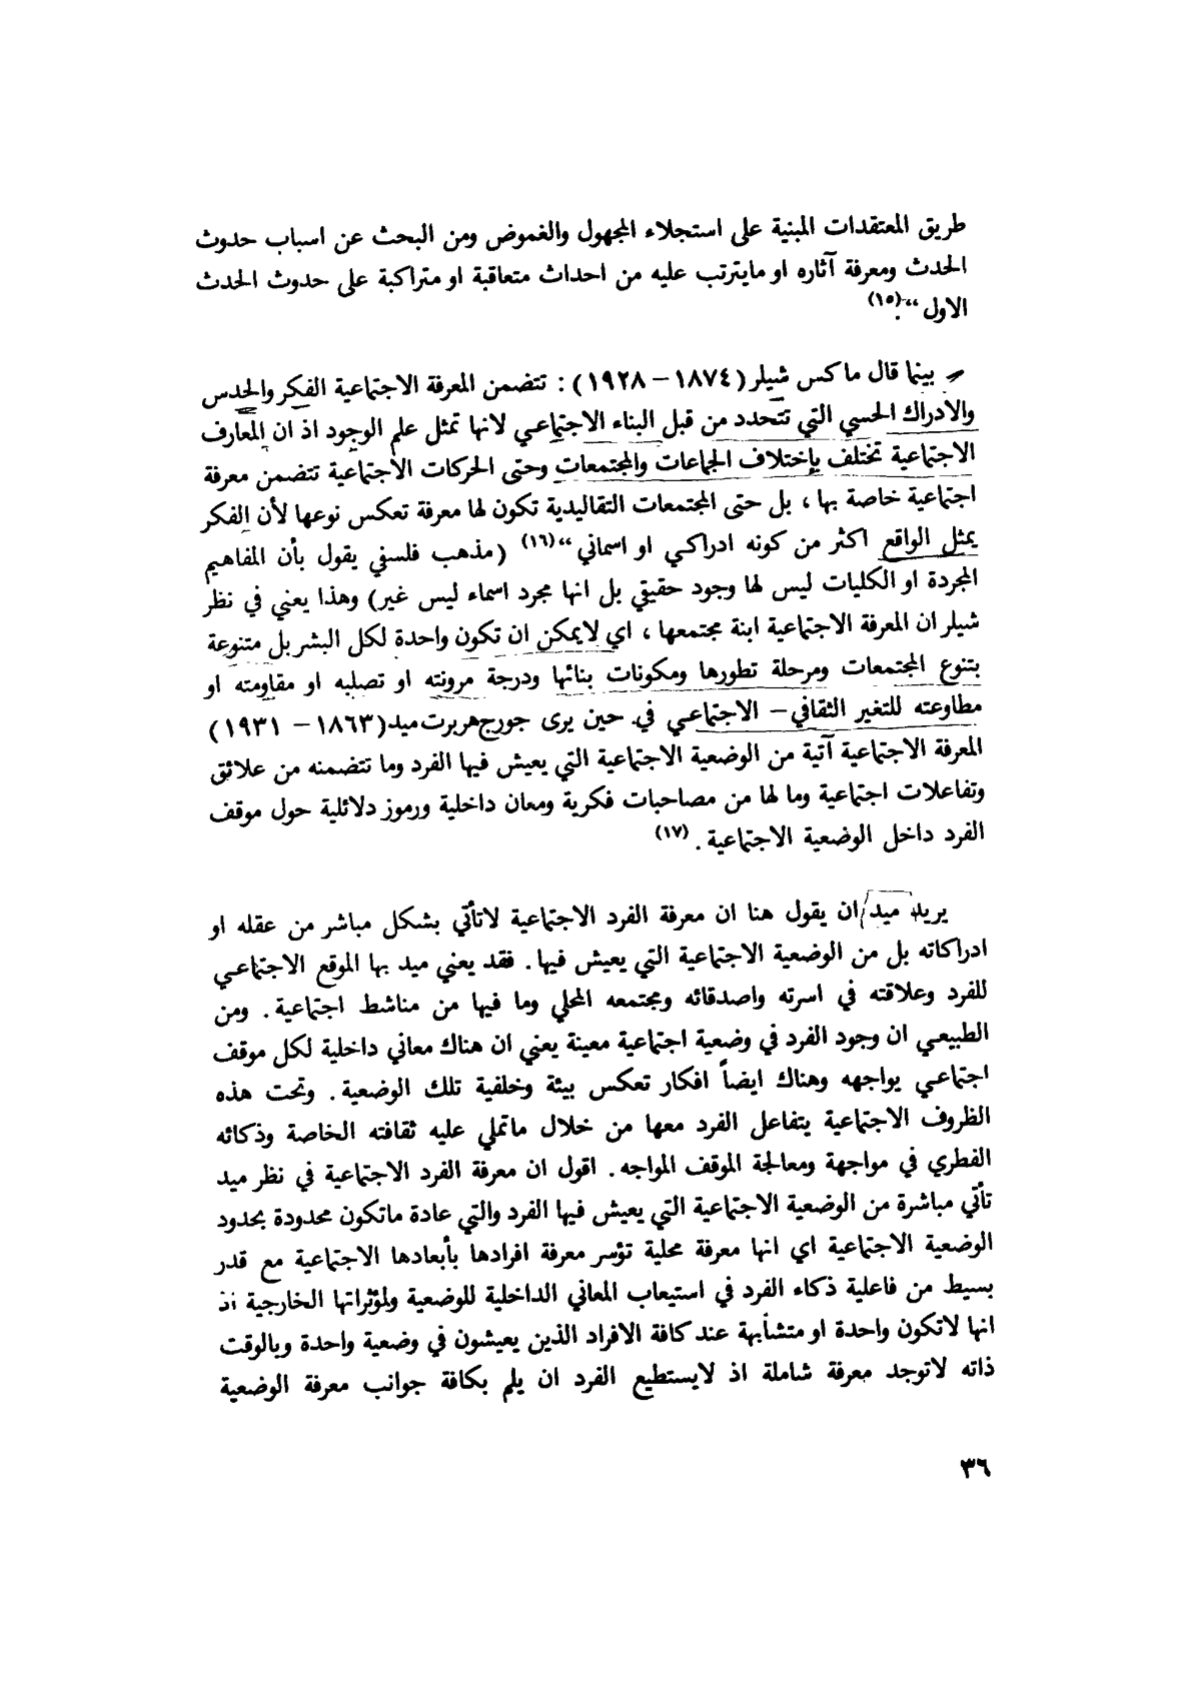 طريق المعتقدات المبنية على استجلاء المجهول والغموض ومن البحث عن اسباب حدوث
الحدث ومعرفة آثاره او مايترتب عليه من احداث متعاقبة او متراكبة على حدوث الحدث
الاول“.(١٥)
بينما قال ماكس شيلر (١٨٧٤ – ١٩٢٨) : تتضمن المعرفة الاجتماعية الفكر والحدس
والادراك الحسي التي تتحدد من قبل البناء الاجتماعي لانها تمثل علم الوجود اذ ان المعارف
الاجتماعية تختلف بإختلاف الجماعات والمجتمعات وحتى الحركات الاجتماعية تتضمن معرفة
اجتماعية خاصة بها ، بل حتى المجتمعات التقاليدية تكون لها معرفة تعكس نوعها لأن الفكر
يمثل الواقع اكثر من كونه ادراكي او اسماني“(١٦) (مذهب فلسفي يقول بأن المفاهيم
المجردة او الكليات ليس لها وجود حقيقي بل انها مجرد اسماء ليس غير) وهذا يعني في نظر
شيلر ان المعرفة الاجتماعية ابنة مجتمعها ، اي لايمكن ان تكون واحدة لكل البشر بل متنوعة
بتنوع المجتمعات ومرحلة تطورها ومكونات بنائها ودرجة مرونته او تصلبه او مقاومته او
مطاوعته للتغير الثقافي – الاجتماعي في حين يرى جورج هربرت ميد (١٨٦٣ – ١٩٣١)
المعرفة الاجتماعية آتية من الوضعية الاجتماعية التي يعيش فيها الفرد وما تتضمنه من علائق
وتفاعلات اجتماعية وما لها من مصاحبات فكرية ومعان داخلية ورموز دلائلية حول موقف
الفرد داخل الوضعية الاجتماعية . (١٧)
يريد ميد ان يقول هنا ان معرفة الفرد الاجتماعية لاتأتي بشكل مباشر من عقله او
ادراكاته بل من الوضعية الاجتماعية التي يعيش فيها . فقد يعني ميد بها الموقع الاجتماعي
للفرد وعلاقته في اسرته واصدقائه ومجتمعه المحلي وما فيها من مناشط اجتماعية . ومن
الطبيعي ان وجود الفرد في وضعية اجتماعية معينة يعني ان هناك معاني داخلية لكل موقف
اجتماعي يواجهه وهناك ايضاً افكار تعكس بيئة وخلفية تلك الوضعية . وتحت هذه
الظروف الاجتماعية يتفاعل الفرد معها من خلال ماتملي عليه ثقافته الخاصة وذكائه
الفطري في مواجهة ومعالجة الموقف المواجه . اقول ان معرفة الفرد الاجتماعية في نظر ميد
تأتي مباشرة من الوضعية الاجتماعية التي يعيش فيها الفرد والتي عادة ماتكون محدودة بحدود
الوضعية الاجتماعية اي انها معرفة محلية تؤسر معرفة افرادها بأبعادها الاجتماعية مع قدر
بسيط من فاعلية ذكاء الفرد في استيعاب المعاني الداخلية للوضعية ولمؤثراتها الخارجية اذ
انها لاتكون واحدة او متشابهة عند كافة الافراد الذين يعيشون في وضعية واحدة وبالوقت
ذاته لاتوجد معرفة شاملة اذ لايستطيع الفرد ان يلم بكافة جوانب معرفة الوضعية
٣٦